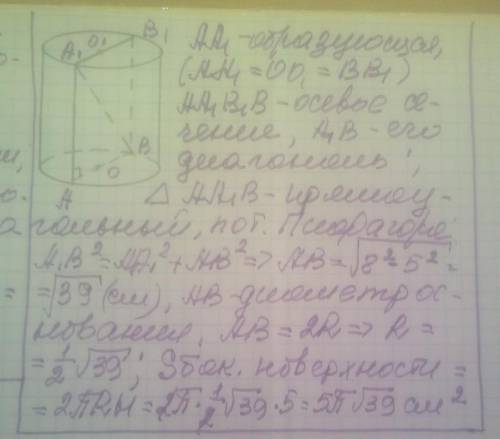 AA₁-образующая,
(AA₁=OO₁=BB₁)
AA₁B₁B-осевое се-
чение, A₁B-его
диагональ;
△ AA₁B-прямоу-
гольный, по т. Пифагора
A₁B²=AA₁²+AB²=>AB=√8²-5²=
=√39(см), AB-диаметр ос-
нования, AB=2R=>R=
=½√39; Sбок. поверхности=
=2πRH=2π·½√39·5=5π√39см²
A₁ O₁ B₁
B
O
A